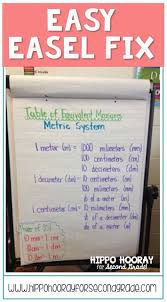 EASY
EASEL FIX
Table of Equivalent Measures
Metric System
1 meter (m) = 1000 millimeters (mm)
100 centimeters (cm)
10 decimeters (dm)
1 decimeter (dm) = 10 centimeters (cm)
100 millimeters (mm)
1 centimeter (cm) = 10 millimeters (mm)
10 mm = 1 cm
10 cm = 1 dm
10 dm = 1 m
HIPPO HOORAY
for Second Grade!
WWW.HIPPOHOORAYFORSECONDGRADE.COM